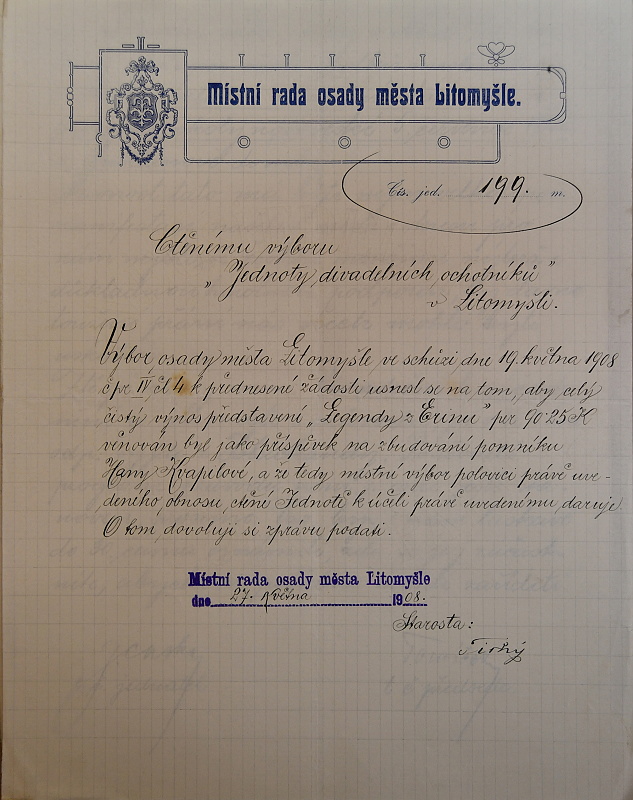 Místní rada osady města Litomyšle.
Čís. jed. 199. m.
Ctěnému výboru
„Jednoty divadelních ochotníků"
v Litomyšli.
Výbor osady města Litomyšle, ve schůzi dne 19. května 1908
č pr IV čl 4 k přednesení žádosti usnesl se na tom, aby celý
čistý výnos představení „Legendy z Erinu" pr 90·25 K
věnován byl jako příspěvek na zbudování pomníku
Hany Kvapilové, a že tedy místní výbor polovici právě uve-
deného obnosu, ctěné Jednotě k účeli právě uvedenému, daruje.
O tom dovoluji si zprávu podati.
Místní rada osady města Litomyšle
dne 27. května 1908.
Starosta:
Tichý